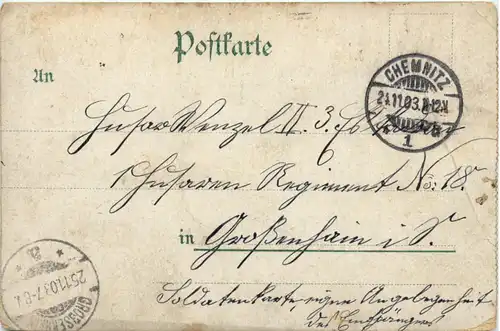 Postkarte
CHEMNITZ
24.11.03.
1
An
Husar Wenzel II. 3.
1 Husaren Regiment No: 18.
in Großenhain i. S.
25.11.03.7-8
Soldatenkarte, eigne Angelegenheit
des Empfängers